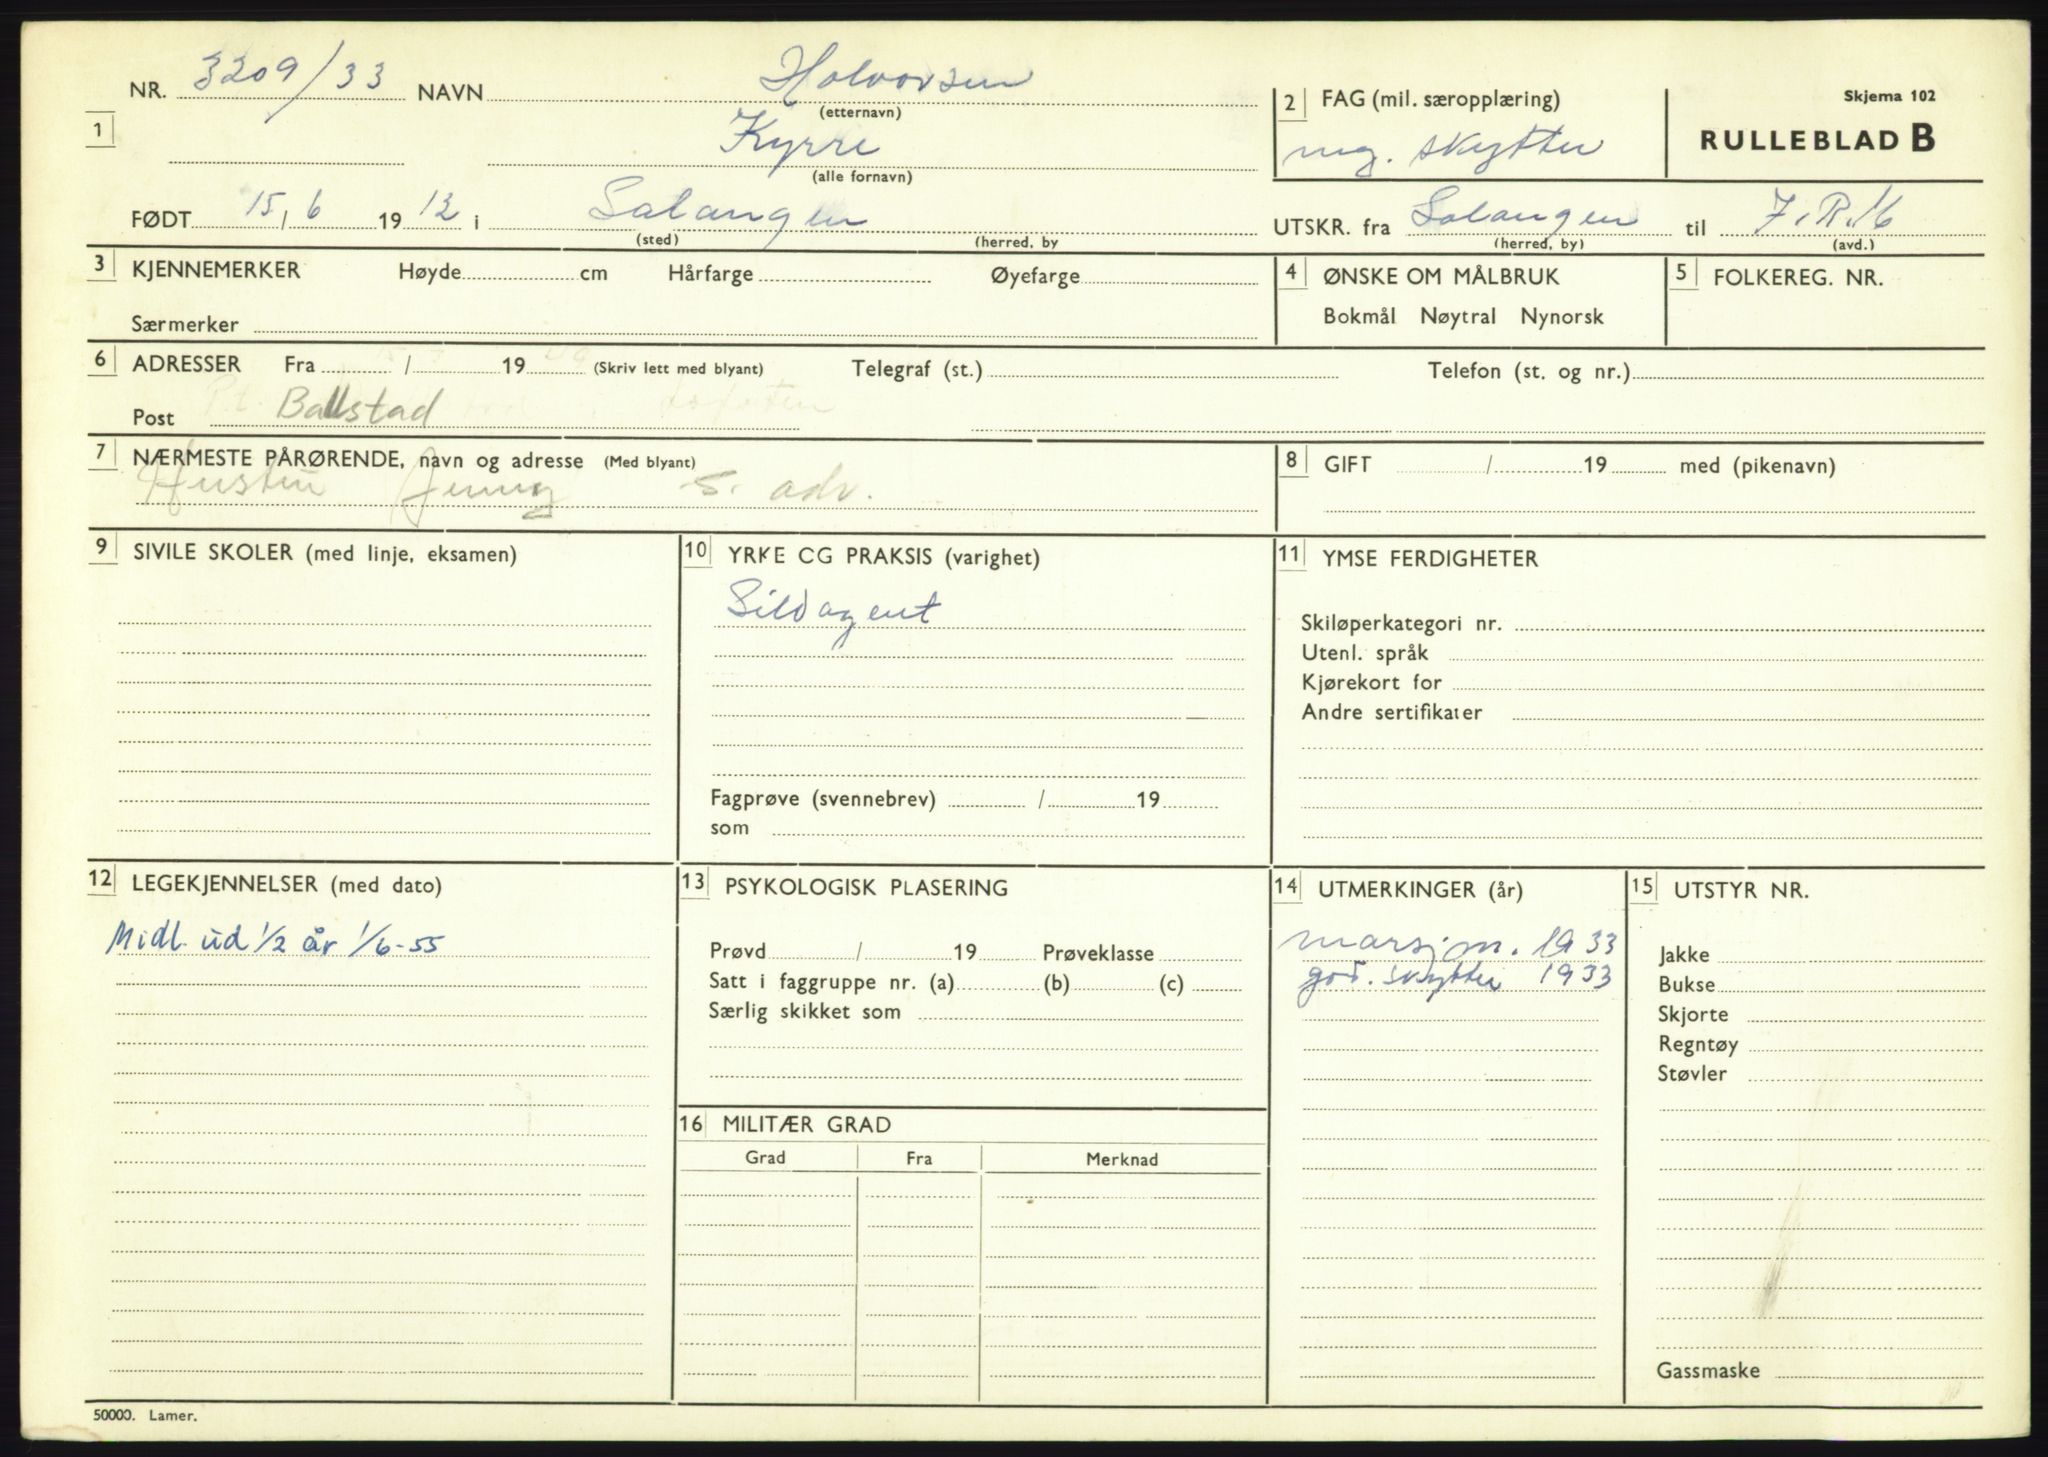 Skjema 102
RULLEBLAD B
NR. 3209/33 NAVN Halvorsen
(etternavn)
1
Kyrre
(alle fornavn)
FØDT 15/6 1912 i Salangen
(sted) (herred, by
2 FAG (mil. særopplæring)
mg. skytter
UTSKR. fra Salangen til 7. R. 16
(herred, by) (avd.)
3 KJENNEMERKER Høyde cm Hårfarge Øyefarge
Særmerker
4 ØNSKE OM MÅLBRUK
Bokmål Nøytral Nynorsk
5 FOLKEREG. NR.
6 ADRESSER Fra / 19 (Skriv lett med blyant) Telegraf (st.) Telefon (st. og nr.)
Post Ballstad
7 NÆRMESTE PÅRØRENDE, navn og adresse (Med blyant)
Hustru Jenny s. adr.
8 GIFT / 19 med (pikenavn)
9 SIVILE SKOLER (med linje, eksamen)
10 YRKE CG PRAKSIS (varighet)
Sildagent
Fagprøve (svennebrev) / 19
som
11 YMSE FERDIGHETER
Skiløperkategori nr.
Utenl. språk
Kjørekort for
Andre sertifikater
12 LEGEKJENNELSER (med dato)
Midl. ud 1/2 år 1/6-55
13 PSYKOLOGISK PLASERING
Prøvd / 19 Prøveklasse
Satt i faggruppe nr. (a) (b) (c)
Særlig skikket som
14 UTMERKINGER (år)
marsjm. 1933
god. skytter 1933
15 UTSTYR NR.
Jakke
Bukse
Skjorte
Regntøy
Støvler
Gassmaske
16 MILITÆR GRAD
Grad Fra Merknad
50000. Lamer.